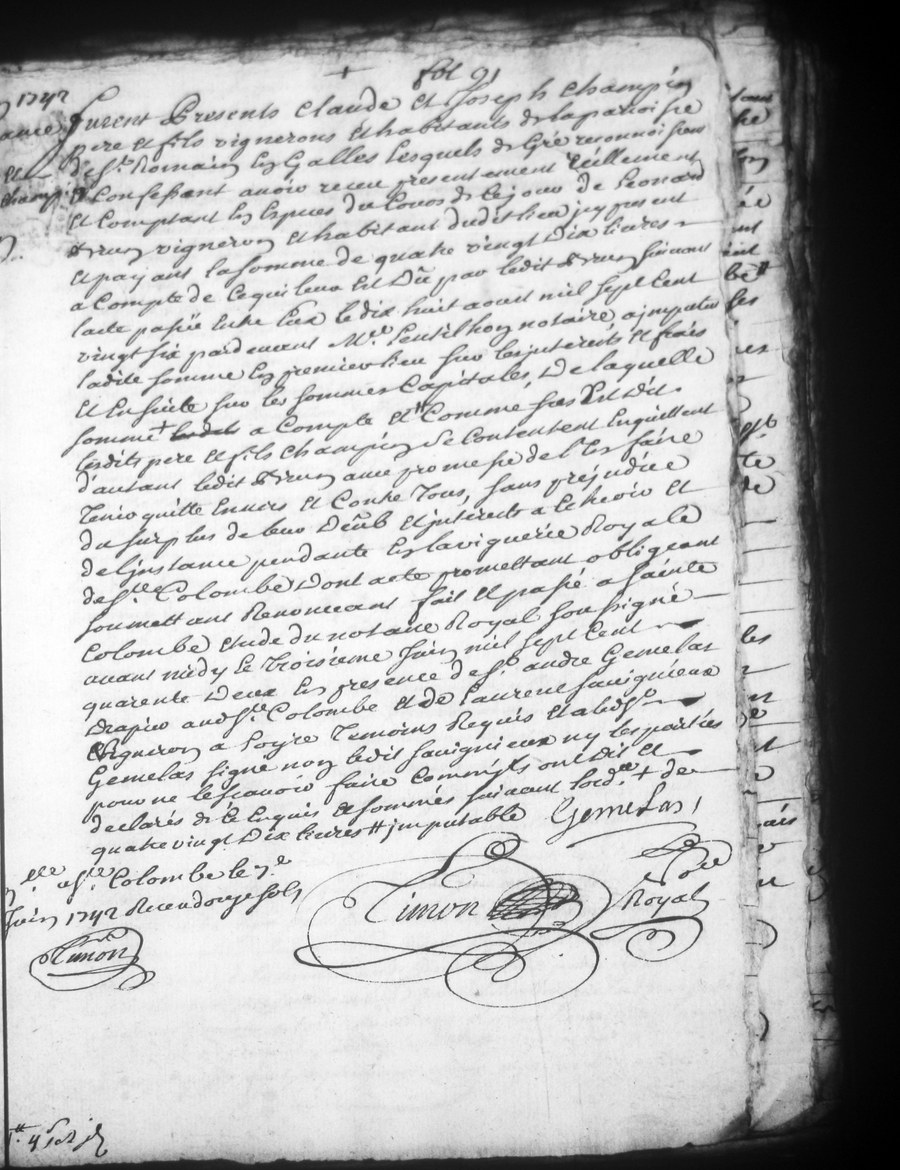 fol 91
1742
furent Presents Claude et Joseph Champin
pere et fils vignerons et habitants de la paroisse
de st. Romain les Galles lesquels de gré reconnoissent
Champ. et Confessent avoir receu presentement réellement
et Comptant en especes du Cours de ce jour de Leonard
vigneron et habitant dudit lieu jcy present
et payant la somme de quatre vingt Dix livres
a Compte de Ce qui leur est Dû par ledit suivant
lacte passé entre Eux le dix huit aoust mil sept Cent
vingt six pardevant Me. notaire a jmputer
ladite somme en premier lieu sur les jnterests et frais
et Ensuite sur les sommes Capitales, De laquelle
somme + a Compte et Comme sus Est Dit
lesdits pere et fils Champin se Contentent Enquittent
d'autant ledit avec promesse de l'en faire
Tenir quitte Envers et Contre Tous, sans prejudice
du surplus de leur Deub et jnterests a Echeoir et
de l'jnstance pendante En la viguerie Royale
de ste. Colombe Dont acte promettant obligeant
soumettant Renonceant fait et passé a sainte
Colombe etude du notaire Royal soussigné
avant midy le Troisieme juin mil sept Cent
quarente Deux En presence de sr. andre Gemelas
Drapier audt. ste. Colombe et de Laurent Savignieux
Vigneron a Loyre Temoins Requis et
Gemelas signé non ledit Savignieux ny les parties
pour ne le scavoir faire Comme jls ont Dit et
declarés de ce Enquis et sommés suivant lordce. + de
quatre vingt Dix livres jmputable Gemelas
a ste. Colombe le 7e.
juin 1742 Receu douze sols
Timon
Timon
Royal